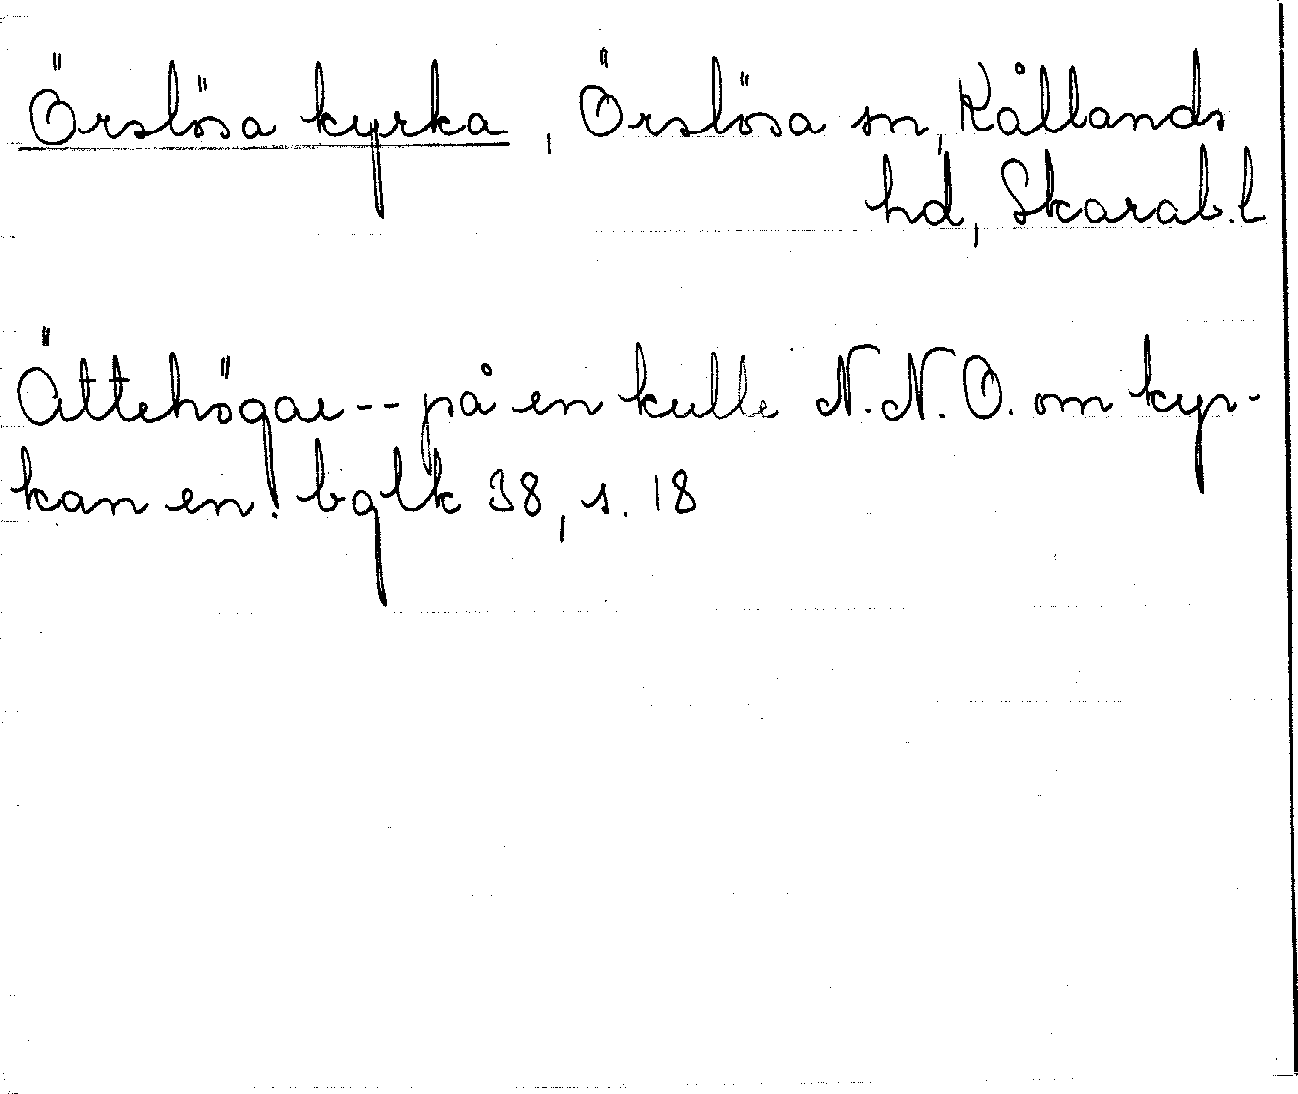 Örslösa kyrka, Örslösa sn, Kållands
hd, Skarab. l
Ättehögar -- på en kulle N.N.O. om kyr-
kan en! bglk 38, s. 18